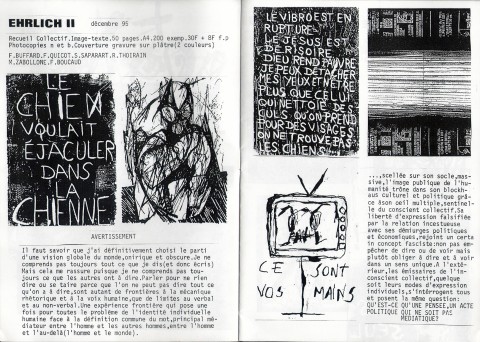 EHRLICH II décembre 95
Recueil Collectif.Image-texte.50 pages.A4.200 exemp.30F + 8F f.p
Photocopies n et b.Couverture gravure sur plâtre(2 couleurs)
F.BUFFARD.F.QUICOT.S.SAPARART.R.THOIRAIN
M.ZABOLLONE.F.BOUCAUD
LE
CHIEN
VOULAIT
ÉJACULER
DANS
LA
CHIENNE
AVERTISSEMENT
Il faut savoir que j'ai définitivement choisi le parti
d'une vision globale du monde,onirique et obscure.Je ne
comprends pas toujours tout ce que je dis(et donc écris)
Mais cela me rassure puisque je ne comprends pas tou-
jours ce que les autres ont à dire.Parler pour ne rien
dire ou se taire parce que l'on ne peut pas dire tout ce
qu'on a à dire,sont autant de frontières à la mécanique
rhétorique et à la voix humaine,que de limites au verbal
et au non-verbal.Une expérience frontière qui pose une
fois pour toutes le problème de l'identité individuelle
humaine face à la définition commune du mot,principal mé-
diateur entre l'homme et les autres hommes,entre l'homme
et l'au-delà(l'homme et le monde).
LE VIBRÖ EST EN
RUPTURE
LE JÉSUS EST
DIEU REND PAUVRE
JE PEUX DÉTACHER
MES YEUX ET N'ÊTRE
PLUS QUE CELUI
QUI NETTOIE DES
CULS QU'ON PREND
POUR DES VISAGES
ON NE TROUVE PAS
LES CHIENS
CE SONT
VOS MAINS
...,scellée sur son socle,mas-
sive,l'image publique de l'hu-
manité trône dans son blockh-
aus culturel et politique grâ-
ce à son oeil multiple,sentinel-
le du conscient collectif.Sa
liberté d'expression falsifiée
par la relation incestueuse
avec ses démiurges politiques
et économiques,rejoint un certa
in concept fasciste:non pas em-
pêcher de dire ou de voir mais
plutôt obliger à dire et à voir
dans un sens unique.A l'exté-
rieur,les émissions de l'in-
conscient collectif,quelque
soit leurs modes d'expression
individuels,s'interrogent tous
et posent la même question:
QU'EST-CE QU'UNE PENSEE,UN ACTE
POLITIQUE QUI NE SOIT PAS
MEDIATIQUE?